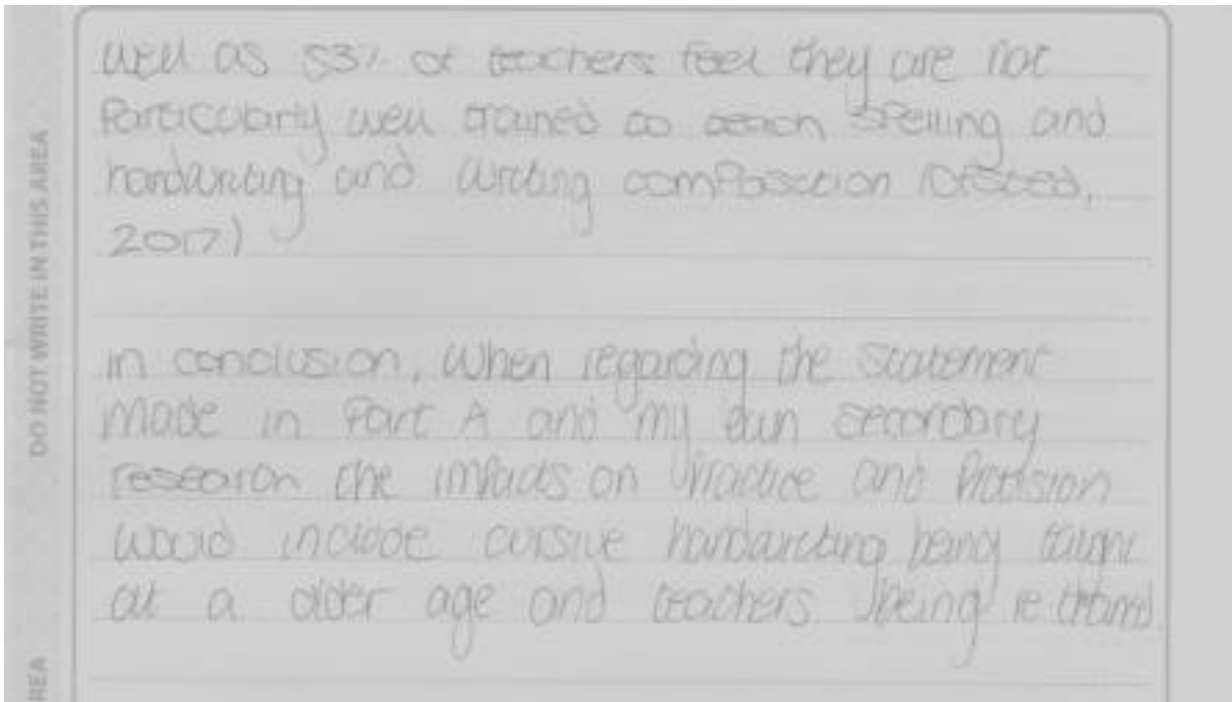 well as 53% of teachers feel they are not
Particularly well trained to teach spelling and
handwriting and writing composition (Ofsted,
2017)
in conclusion, when regarding the statement
made in Part A and my own secondary
research the impacts on Practice and Provision
would include cursive handwriting being taught
at a older age and teachers being re trained.
DO NOT WRITE IN THIS AREA
REA